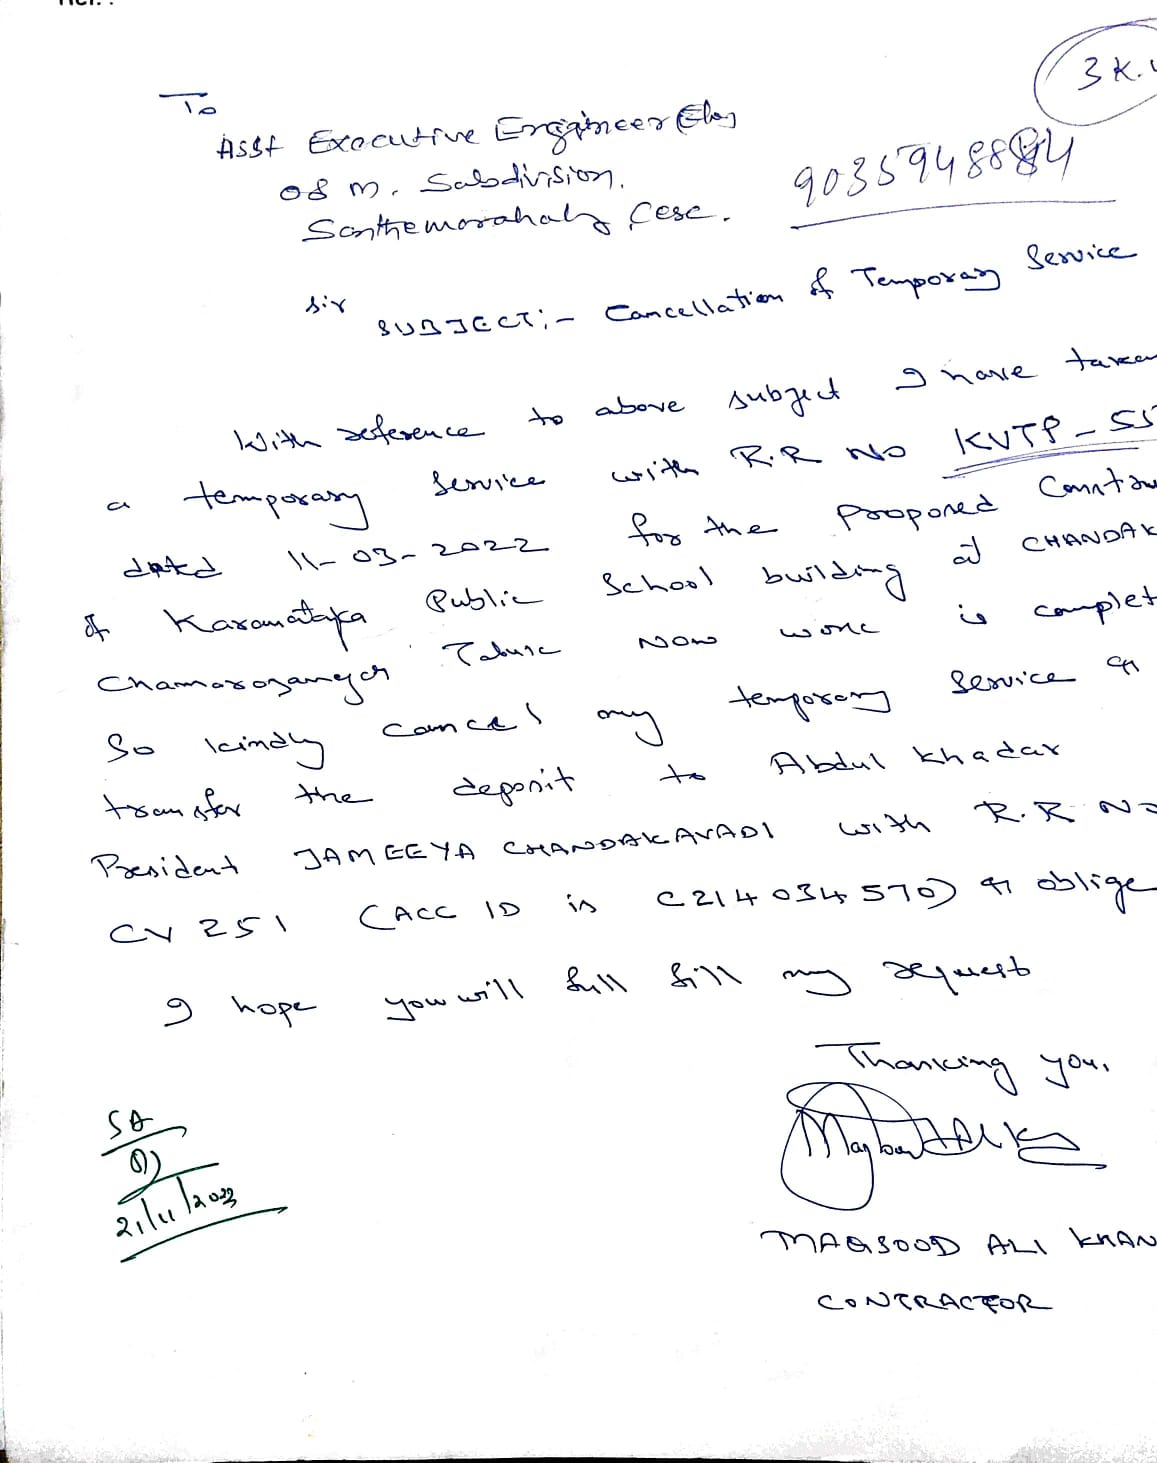 3 K.
To
Asst Executive Engineer (Ele)
O & M. Subdivision.
Santhemarahaly, Cesc.
9035948884
Sir
SUBJECT:- Cancellation of Temporary Service
With reference to above subject I have taken
a temporary service with R.R NO KVTP-55
dated 11-03-2022 for the proposed Constru
of Karanataka Public School building at CHANDAK
Chamarajanagar Taluk Now work is complet
So kindly cancel my temporary service &
transfer the deposit to Abdul Khadar
President JAMEEYA CHANDAKAVADI with R.R NO
CV 251 (ACC ID is C214034570) & oblige
I hope you will full fill my request
Thanking you.
SA
21/11/2023
MAQSOOD ALI KHAN
CONTRACTOR